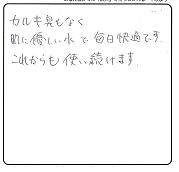 カルキ臭もなく
肌に優しい水で毎日快適です。
これからも使い続けます。